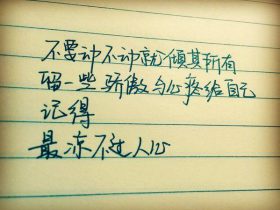 不要动不动就倾其所有
留一些骄傲与心疼给自己
记得
最凉不过人心